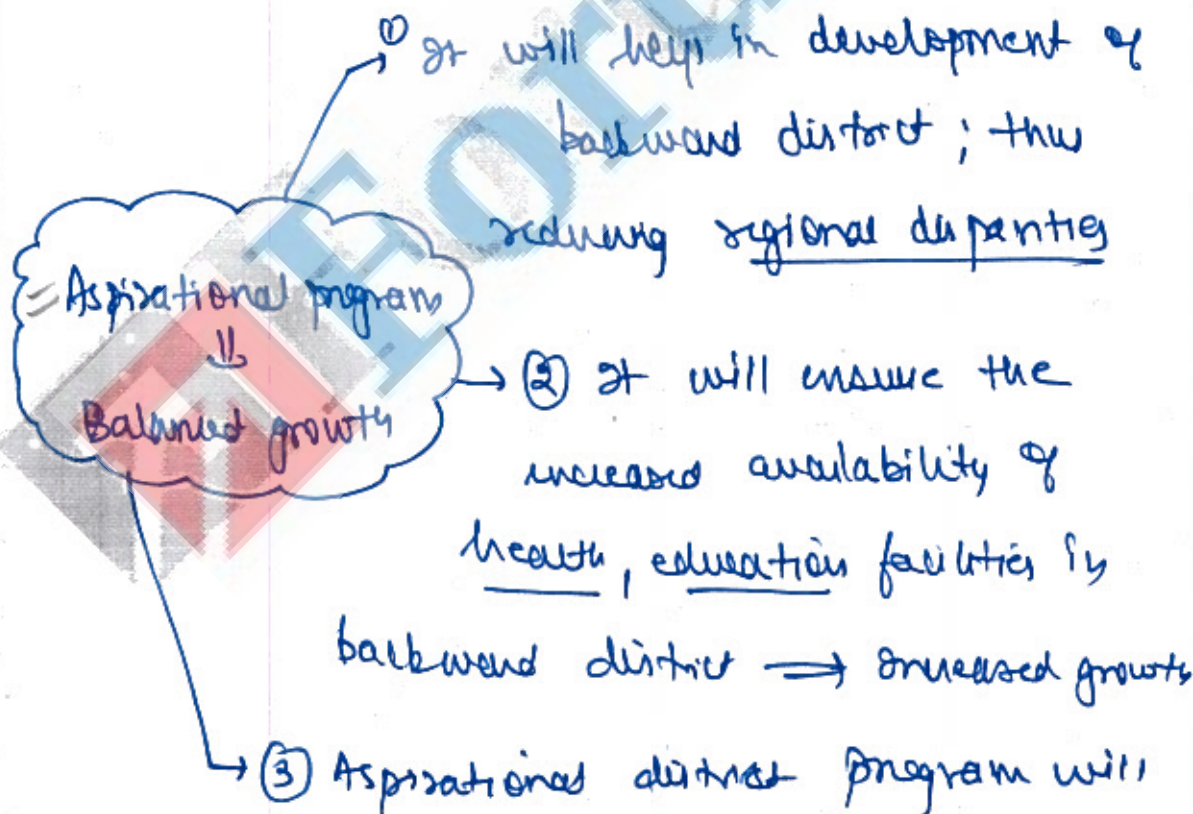 ① It will help in development of
backward district ; thus
reducing regional disparities
Aspirational program
⇓
Balanced growth
→ ② It will ensure the
increased availability of
health, education facilities in
backward district ⟹ increased growth
→ ③ Aspirational district program will